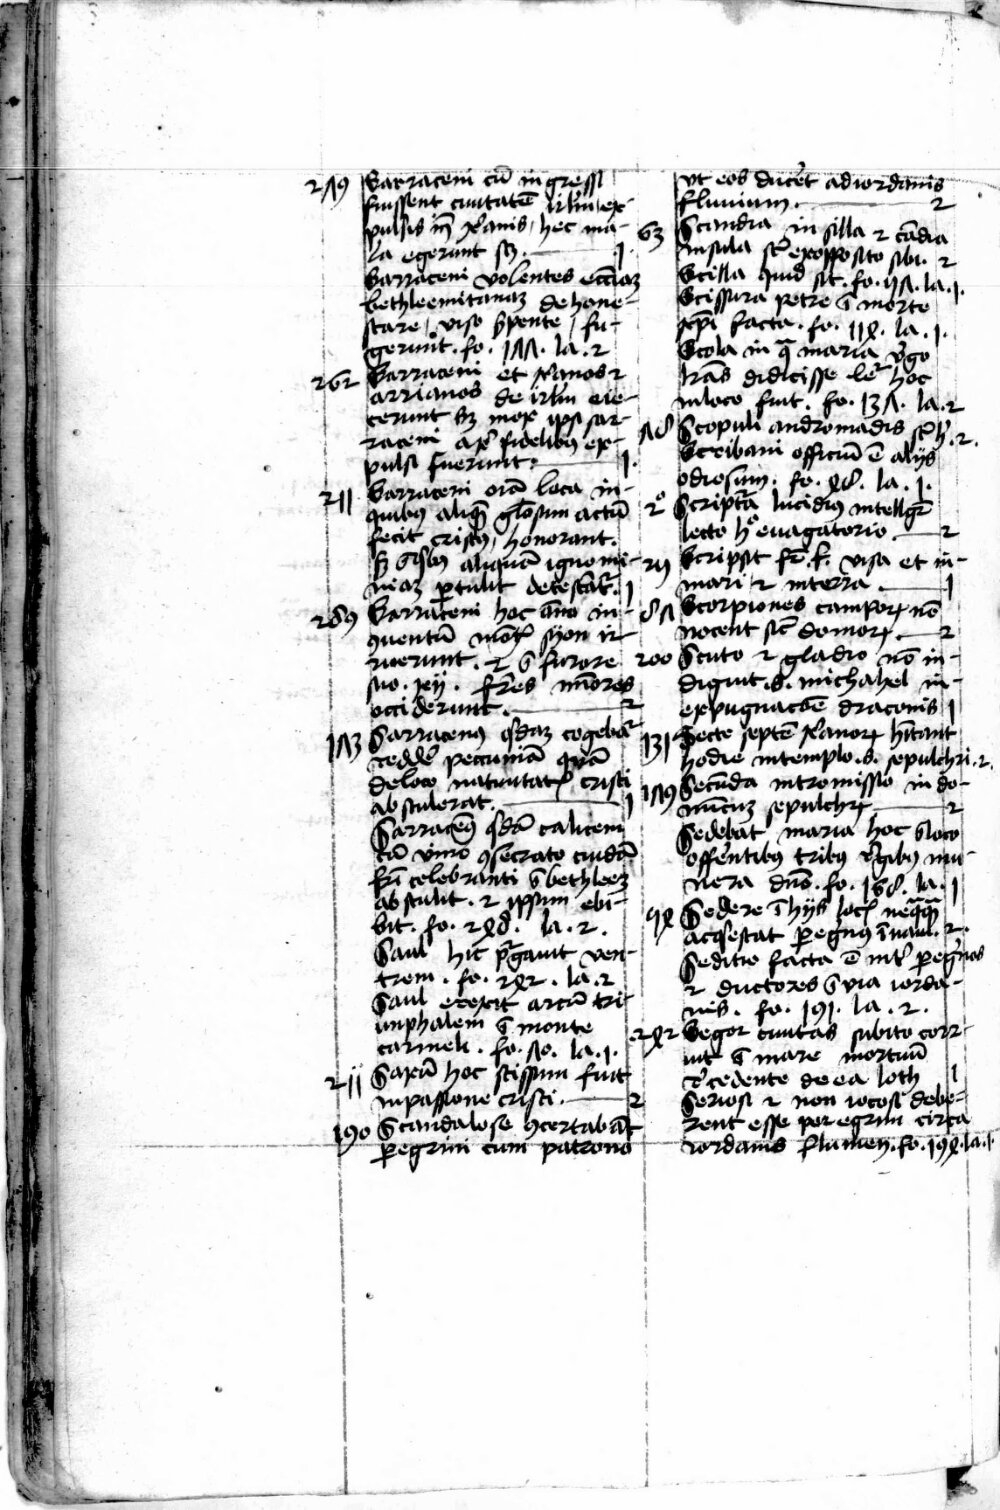 219 Sarraceni cū ingressi
fuissent ciuitatē irlm ex-
pulsis xp̄anis, hec ma-
la egerunt ⸺ 1.
Sarraceni volentes eccl̄iaz
bethleemitanaz dehone-
stare, viso s̄pente, fu-
gerunt. fo. 177. la. 2
262 Sarraceni et xp̄anos 2
arrianos de irlm eie-
cerunt sz mox ipsi sar-
raceni a xp̄i fidelibꝰ ex-
pulsi fuerunt. ⸺ 1.
211 Sarraceni oīa loca in
quibus aliqd gl̄osum actū
fecit cristꝰ, honorant.
sz cristꝰ aliquam ignomi-
niaz ꝑtulit detestāt̄. 1
289 Sarraceni hoc āno in
ꝯuentū mōt syon ir-
ruerunt. 2 ī furore
suo. xij. fr̄es mīores
occiderunt. ⸺ 2
173 Sarracenꝰ qdaz cogebat̄
reddē peccuniā quā
de loco natiuitatꝭ cristi
abstulerat. ⸺ 1
Sarracēꝰ qdā calicem
cū vino ꝯsecrato cuidā
fr̄i celebranti ī bethleem
abstulit. 2 ipsum ebi-
bit. fo. 248. la. 2.
Saul hic pᵘgauit ven-
trem. fo. 242. la. 2
Saul erexit arcū tri-
umphalem ī monte
carmeli. fo. 70. la. 1.
211 Saxū hoc scissum fuit
in passione cristi. ⸺ 2
190 Scandalose ꝯcertabāt
ꝑegrini cum patrono
vt eos ducēt ad iordanis
fluuium. ⸺ 2
63 Scandia in silla 2 cādia
insula ex opposito sibi. 2
Scilla quid sit. fo. 57. la. 1.
Scissura petre ī morte
xp̄i facta. fo. 114. la. 1.
Scola in qᵃ maria v̄go
lr̄as didicisse hoc
in loco fuit. fo. 137. la. 2
78 Scopuli andromadis 2.
Scribani officiū ē alijs
odiosum. fo. 48. la. 1.
2° Scriptᵃ lucidiꝰ intelligr̄
lecto hº euagatorio. ⸺ 2
29 Scripsit fr̄. f. visa et in
mari 2 in terra. ⸺ 1
87 Scorpiones campoꝝ nō
nocent sic̄ domoꝝ. ⸺ 2
200 Scuto 2 gladio nō in-
diguit. s. michahel in
expugnacōe draconis 1
131 Secte septē xp̄anoꝝ hītant
hodie in templo. s. sepulchri. 2.
179 Secūda intromissio in do-
minicuz sepulchrꝫ ⸺ 2
Sedebat maria hoc ī loco
offerētibꝰ tribꝰ rᵉgibꝰ mu-
nera dn̄o. fo. 168. la. 1
94 Sedere ī hijs locꝭ neqᵃqᵃ
acqⁱescat ꝑegrinꝰ ī naui. 2.
Seditio facta ē int̄ ꝑegrinos
2 ductores ī via iorda-
nis. fo. 191. la. 2.
242 Segor ciuitas subito corr-
uit ī mare mortuū
rᵉcedente de ea loth 1
Seriosi 2 non iocosi debe-
rent esse peregrini circa
iordanis flumen. fo. 194. la. 1